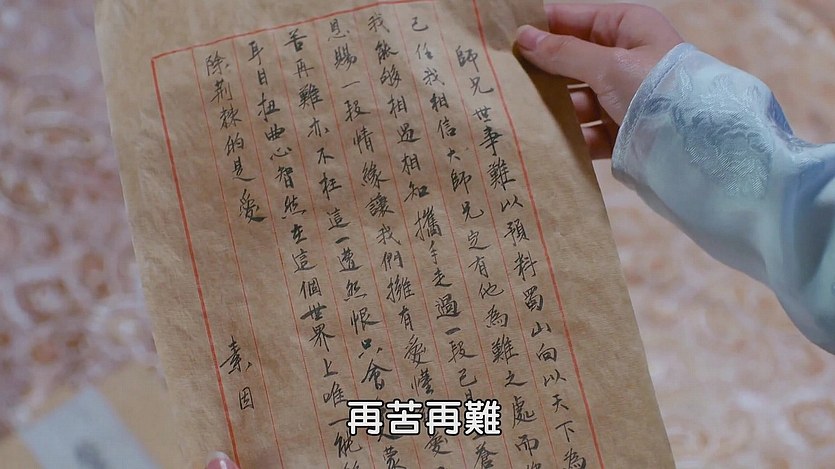 師兄世事難以預料蜀山向以天下為
己任我相信大師兄定有他為難之處而
我能夠相遇相知攜手走過一段已是蒼
恩賜一段情緣讓我們擁有愛懂愛
苦再難亦不枉這一遭然恨只會蒙
耳目扭曲心智然在這個世界上唯一能
除荊棘的是愛
素因
再苦再難